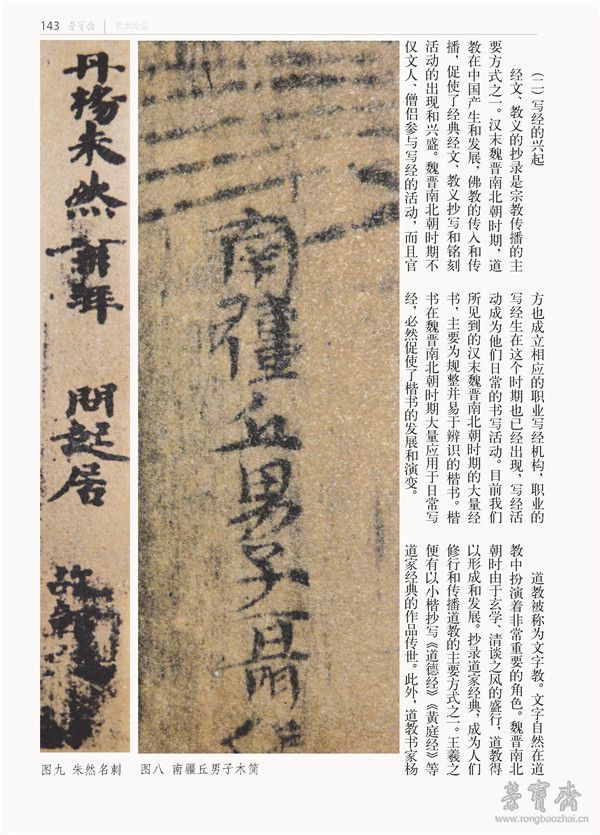 143 荣宝斋 艺术论坛
（二）写经的兴起
经文、教义的抄录是宗教传播的主
要方式之一。汉末魏晋南北朝时期，道
教在中国产生和发展，佛教的传入和传
播，促使了经典经文、教义抄写和铭刻
活动的出现和兴盛。魏晋南北朝时期不
仅文人、僧侣参与写经的活动，而且官
方也成立相应的职业写经机构，职业的
写经生在这个时期也已经出现，写经活
动成为他们日常的书写活动。目前我们
所见到的汉末魏晋南北朝时期的大量经
书，主要为规整并易于辨识的楷书。楷
书在魏晋南北朝时期大量应用于日常写
经，必然促使了楷书的发展和演变。
道教被称为文字教。文字自然在道
教中扮演着非常重要的角色。魏晋南北
朝时由于玄学、清谈之风的盛行，道教得
以形成和发展。抄录道家经典，成为人们
修行和传播道教的主要方式之一。王羲之
便有以小楷抄写《道德经》《黄庭经》等
道家经典的作品传世。此外，道教书家杨
南疆丘男子
丹楊朱然再拜 問起居
图八 南疆丘男子木简
图九 朱然名刺
榮寶齋
www.rongbaozhai.cn